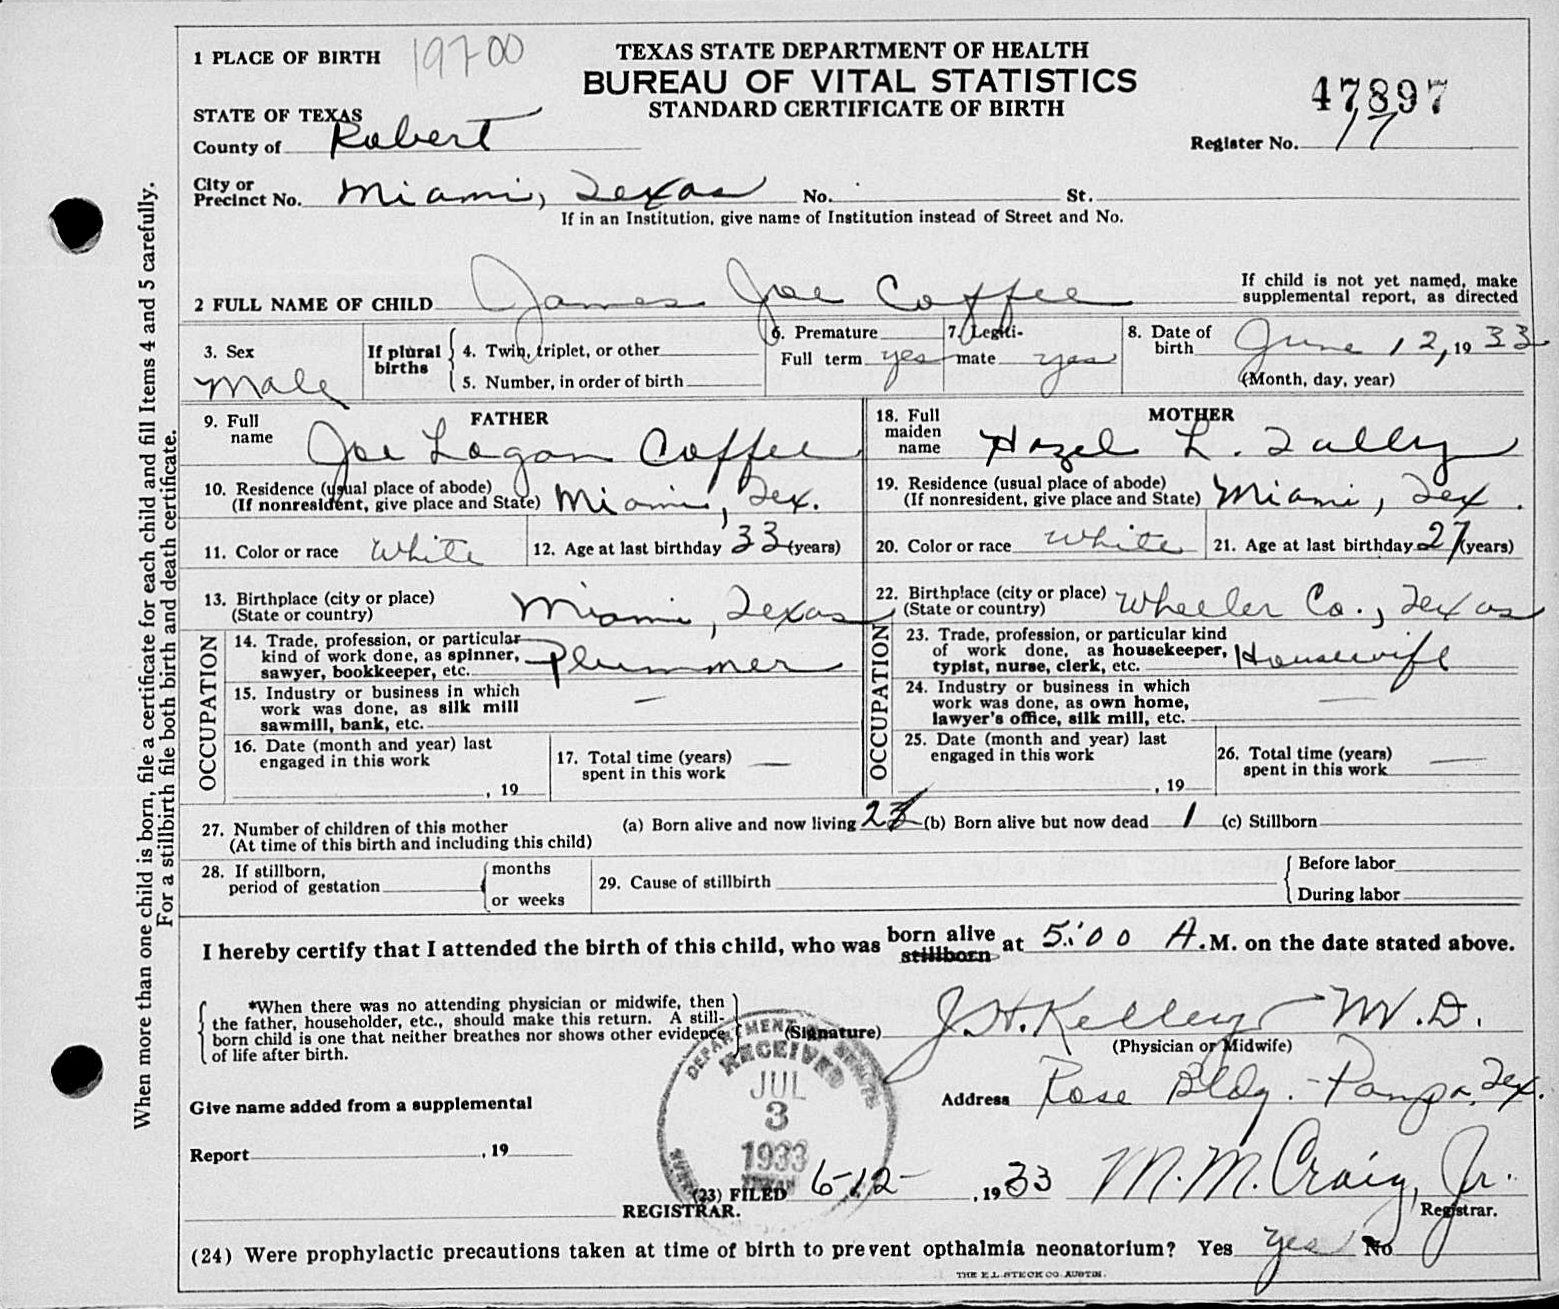 1 PLACE OF BIRTH 19700
TEXAS STATE DEPARTMENT OF HEALTH
BUREAU OF VITAL STATISTICS
STANDARD CERTIFICATE OF BIRTH
47897
STATE OF TEXAS
County of Robert
Register No. 17
City or Precinct No. Miami, Texas No. St.
If in an Institution, give name of Institution instead of Street and No.
2 FULL NAME OF CHILD James Joe Coffee
If child is not yet named, make
supplemental report, as directed
3. Sex Male
If plural births
4. Twin, triplet, or other
5. Number, in order of birth
6. Premature
Full term yes
7. Legiti-
mate yes
8. Date of birth June 12, 1933
(Month, day, year)
FATHER
9. Full name Joe Logan Coffee
10. Residence (usual place of abode)
(If nonresident, give place and State) Miami, Tex.
11. Color or race White
12. Age at last birthday 33 (years)
13. Birthplace (city or place)
(State or country) Miami, Texas
OCCUPATION
14. Trade, profession, or particular
kind of work done, as spinner,
sawyer, bookkeeper, etc. Plummer
15. Industry or business in which
work was done, as silk mill
sawmill, bank, etc. —
16. Date (month and year) last
engaged in this work
, 19
17. Total time (years)
spent in this work —
MOTHER
18. Full
maiden
name Hazel L. Talley
19. Residence (usual place of abode)
(If nonresident, give place and State) Miami, Tex.
20. Color or race White
21. Age at last birthday 27 (years)
22. Birthplace (city or place)
(State or country) Wheeler Co., Texas
OCCUPATION
23. Trade, profession, or particular kind
of work done, as housekeeper,
typist, nurse, clerk, etc. Housewife
24. Industry or business in which
work was done, as own home,
lawyer's office, silk mill, etc. —
25. Date (month and year) last
engaged in this work
, 19
26. Total time (years)
spent in this work —
27. Number of children of this mother
(At time of this birth and including this child)
(a) Born alive and now living 2 (b) Born alive but now dead 1 (c) Stillborn
28. If stillborn,
period of gestation
months
or weeks
29. Cause of stillbirth
Before labor
During labor
I hereby certify that I attended the birth of this child, who was born alive stillborn at 5:00 A. M. on the date stated above.
*When there was no attending physician or midwife, then
the father, householder, etc., should make this return. A still-
born child is one that neither breathes nor shows other evidence
of life after birth.
(Signature) J. H. Kelley M.D.
(Physician or Midwife)
Address Rose Bldg. - Pampa, Tex.
Give name added from a supplemental
Report , 19
REGISTRAR.
RECEIVED
JUL
3
1933
(23) FILED 6-12- , 1933 M. M. Craig, Jr.
Registrar.
(24) Were prophylactic precautions taken at time of birth to prevent opthalmia neonatorium? Yes yes No
THE E.L. STECK CO. AUSTIN.
When more than one child is born, file a certificate for each child and fill Items 4 and 5 carefully.
For a stillbirth file both birth and death certificate.